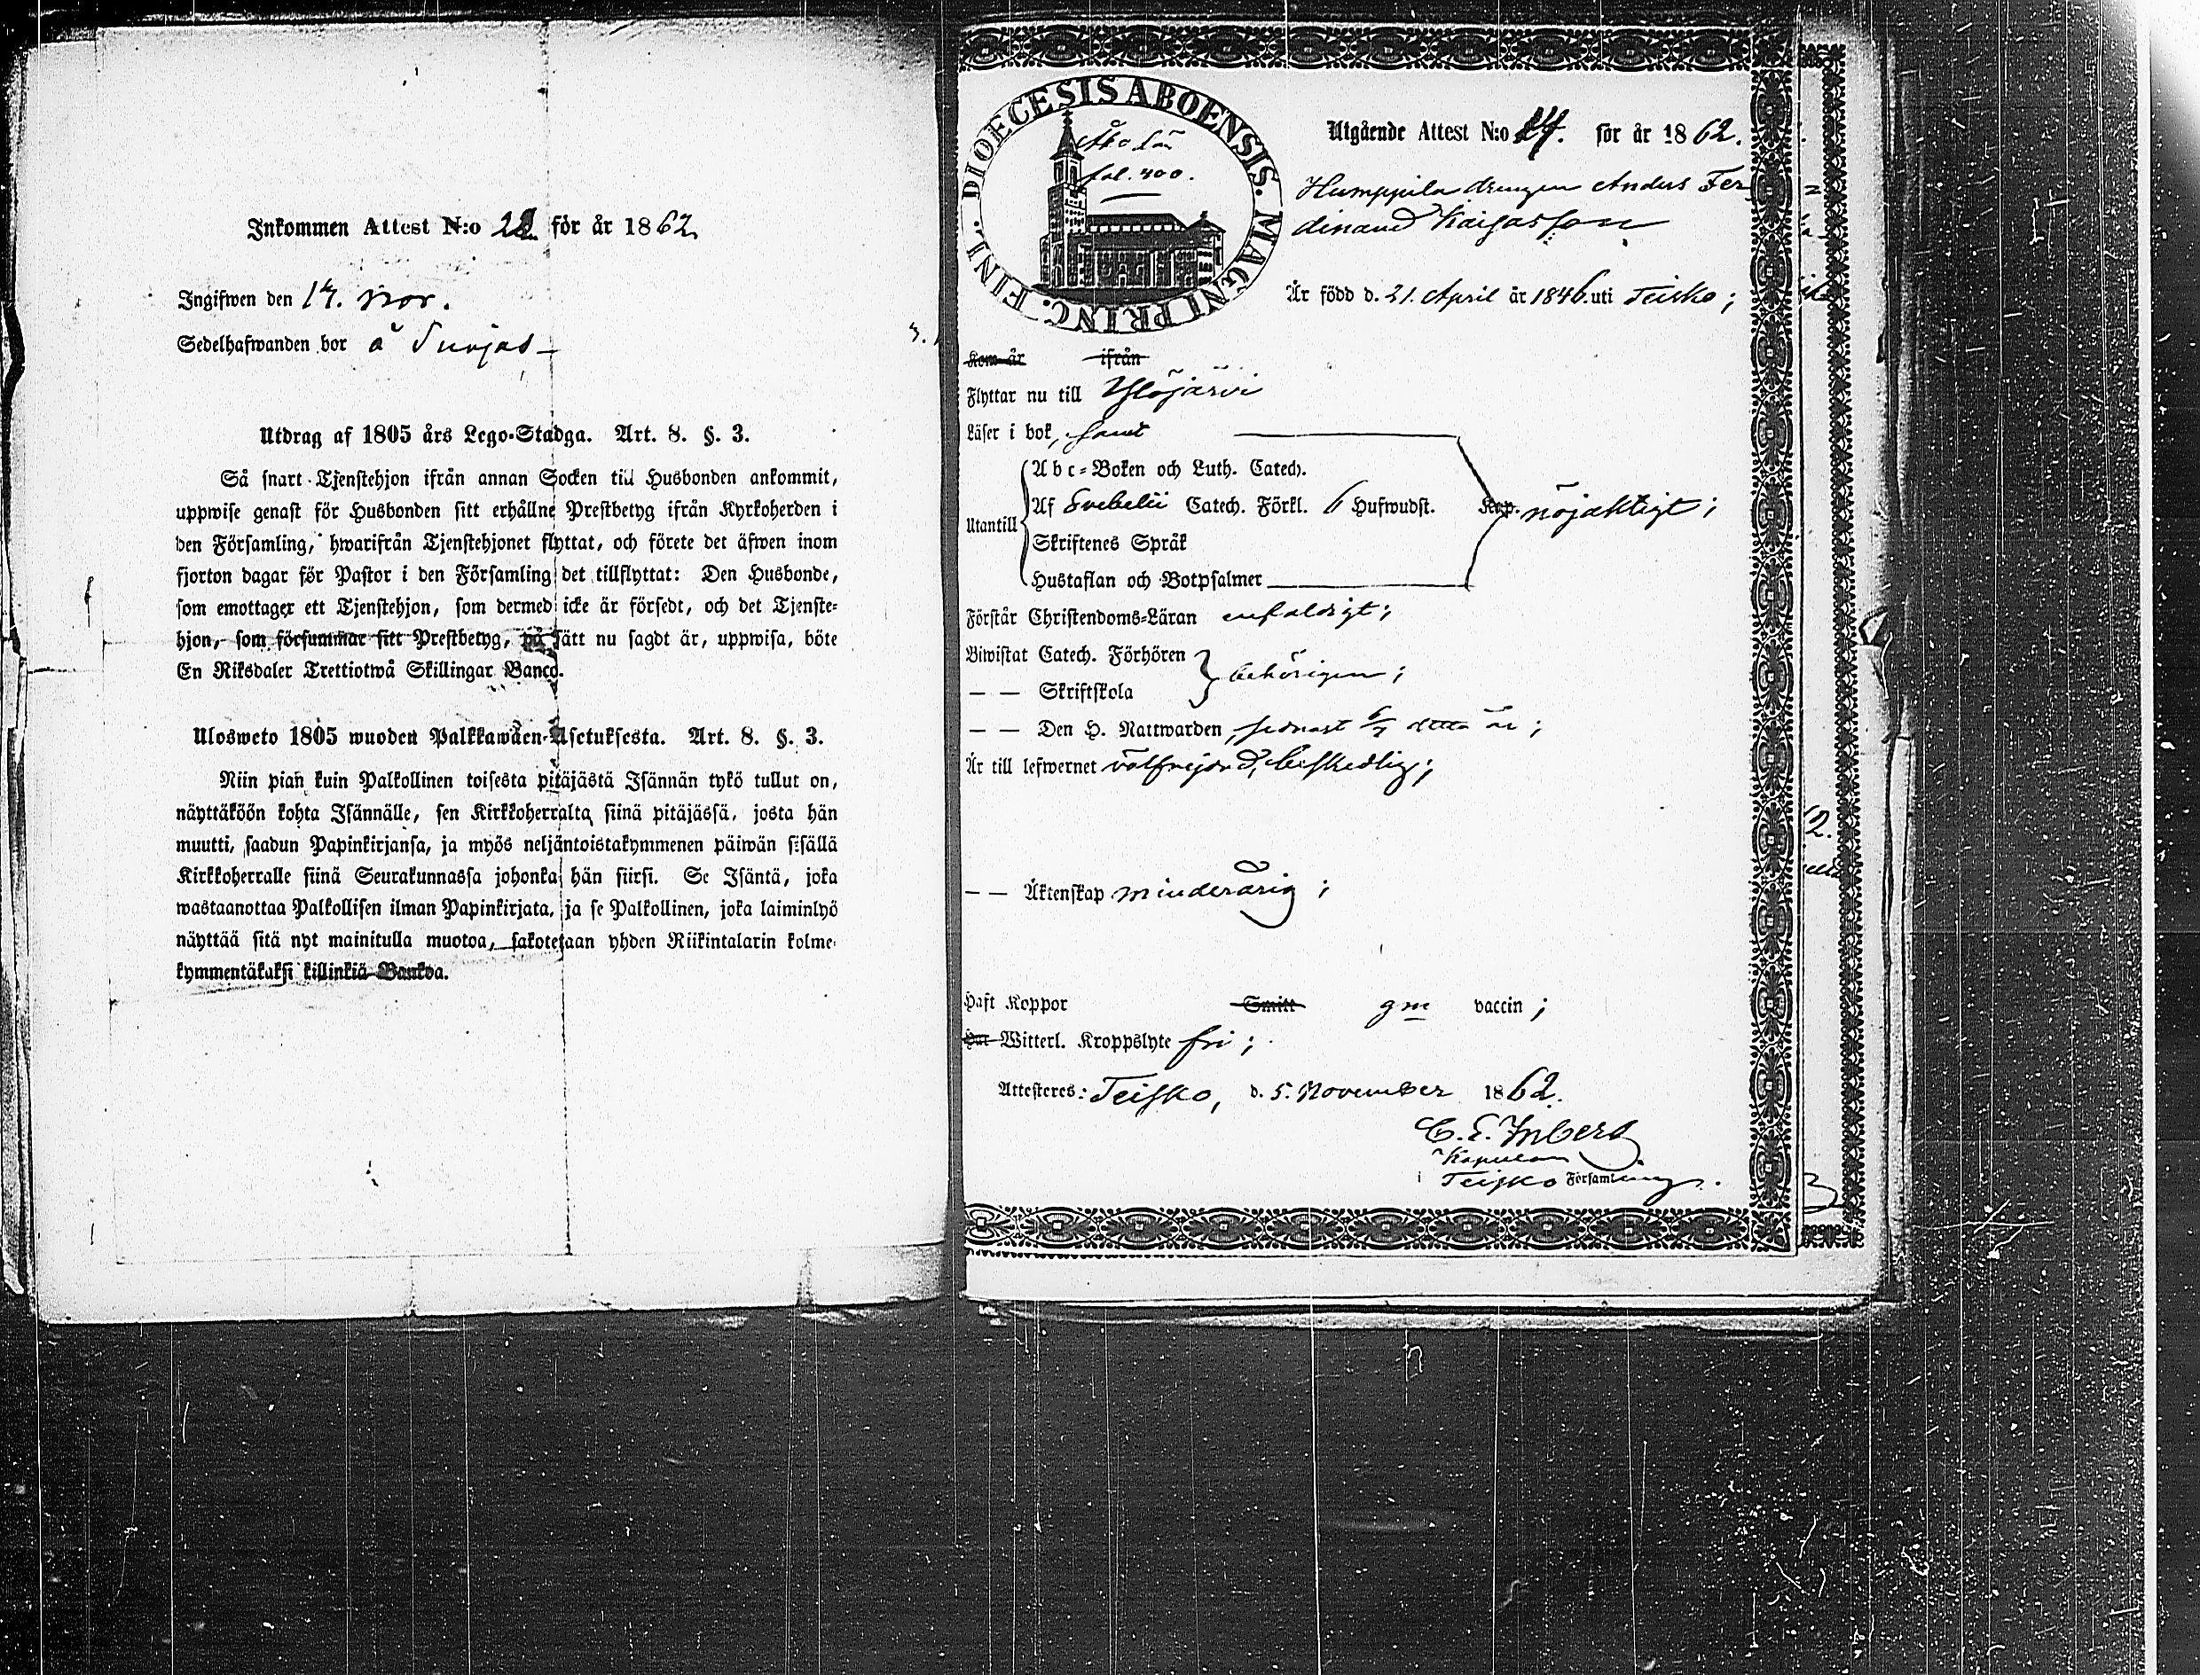 Inkommen Attest N:o 22 för år 1862.
Ingifwen den 17. Nov.
Sedelhafwanden bor å Surjas
Utdrag af 1805 års Lego-Stadga. Art. 8. §. 3.
Så snart Tjenstehjon ifrån annan Socken till Husbonden ankommit,
uppwise genast för Husbonden sitt erhållne Prestbetyg ifrån Kyrkoherden i
den Församling, hwarifrån Tjenstehjonet flyttat, och förete det äfwen inom
fjorton dagar för Pastor i den Församling det tillflyttat: Den Husbonde,
som emottager ett Tjenstehjon, som dermed icke är försedt, och det Tjenste-
hjon, som försummar sitt Prestbetyg, på sätt nu sagdt är, uppwisa, böte
En Riksdaler Trettiotwå Skillingar Banco.
Ulosweto 1805 wuoden Palkkawäen-Asetuksesta. Art. 8. §. 3.
Niin pian kuin Palkollinen toisesta pitäjästä Isännän tykö tullut on,
näyttäköön kohta Isännälle, sen Kirkkoherralta siinä pitäjässä, josta hän
muutti, saadun Papinkirjansa, ja myös neljäntoistakymmenen päiwän sisällä
Kirkkoherralle siinä Seurakunnassa johonka hän siirsi. Se Isäntä, joka
wastaanottaa Palkollisen ilman Papinkirjata, ja se Palkollinen, joka laiminlyö
näyttää sitä nyt mainitulla muotoa, sakotetaan yhden Riikintalarin kolme-
kymmentäkaksi killinkiä Bankoa.
DIOECESIS ABOENSIS. MAGNI PRINC. FINL.
Åbo Län
fol. 400.
Utgående Attest N:o 24. för år 1862.
Humppila drengen Anders Fer
dinand Kaisasson
Är född d. 21. April år 1846. uti Teisko;
Kom år ifrån
Flyttar nu till Ylöjärvi
Läser i bok, samt
Abc-Boken och Luth. Catech.
Utantill Af Svebelii Catech. Förkl. 6 Hufwudst. Kap. nöjaktigt;
Skriftenes Språk
Hustaflan och Botpsalmer
Förstår Christendoms-Läran enfaldigt;
Biwistat Catech. Förhören
— — Skriftskola behörigen;
— — Den H. Nattwarden, sednast 6/7 detta år;
Är till lefwernet välfrejdad, beskedlig;
— — Äktenskap minderårig;
Haft Koppor Smitt gm vaccin;
Har Witterl. Kroppslyte fri;
Attesteres: Teisko, d. 5. November 1862.
C. E. Inberg
Kapellan
i Teisko Församling.